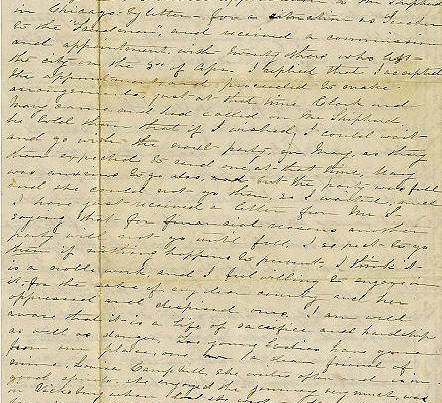 in Chicago by letter - for a situation as Teacher
to the "Freedmen", and received a commission
and appointment, with twenty others who left
the city on the 3d of Apr. I replied that I accepted
the appointment and proceeded to make
arrangements, just at that time Clark and
Mary came, and had called on Mr Shepherd,
he told them that if I wished, I could wait
and go with the next party in May, as they
then expected to send one, at that time, Mary
was anxious to go also, but the party was full
and she could not go then, so I waited, and
I have just received a letter from Mr S
saying that for financial reasons another
party will not go until fall. I expect to go
then if nothing happens to prevent. I think it
is a noble work and I feel willing to engage in
it, for the sake of my dear country and her
oppressed and despised ones. I am well
aware that it is a life of sacrifice and hardship
as well as danger. Two young Ladies have gone
from our place, one a dear friend of
mine, Louisa Campbell, she writes often and is in
good spirits, she enjoyed the journey very much, was
Vicksburg when